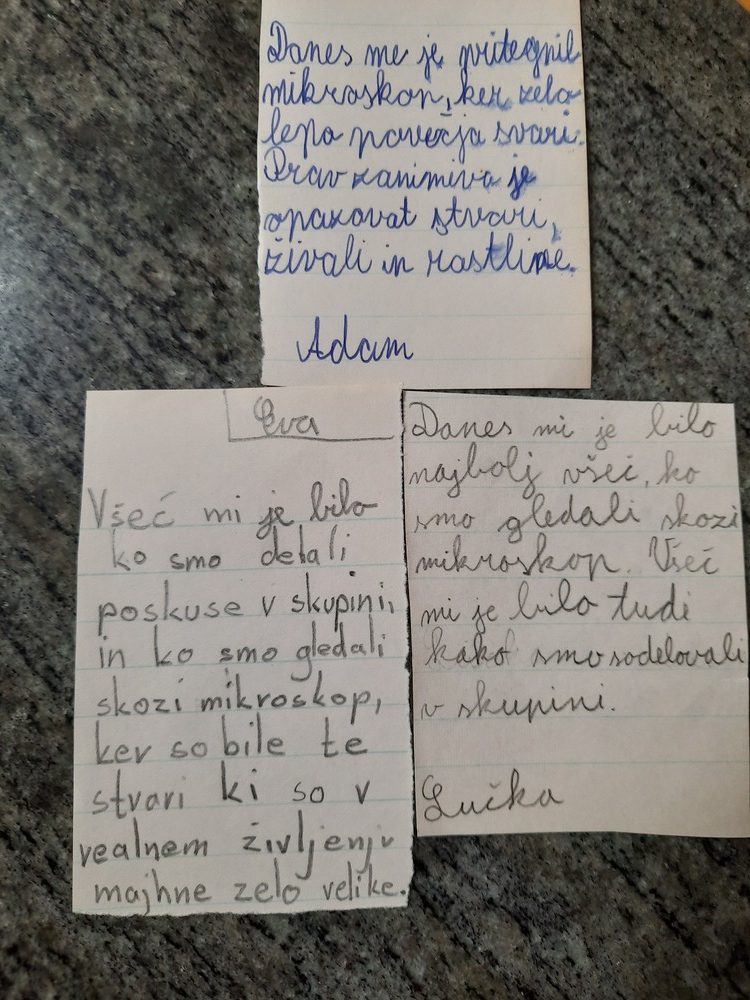 Danes me je pritegnil
mikroskop, ker zelo
lepo poveča svari.
Prav zanimiva je
opazovat stvari,
živali in rastline.
Adam
Eva
Všeč mi je bilo
ko smo delali
poskuse v skupini,
in ko smo gledali
skozi mikroskop,
ker so bile te
stvari ki so v
realnem življenju
majhne zelo velike.
Danes mi je bilo
najbolj všeč, ko
smo gledali skozi
mikroskop. Všeč
mi je bilo tudi
kako smo sodelovali
v skupini.
Lučka